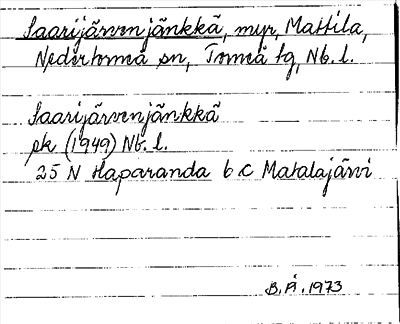 Saarijärvenjänkkä, myr, Mattila,
Nedertorneå sn, Torneå tg, Nb. l.
Saarijärvenjänkkä
pk (1949) Nb. l.
25 N Haparanda b c Matalajärvi
B. Å. 1973